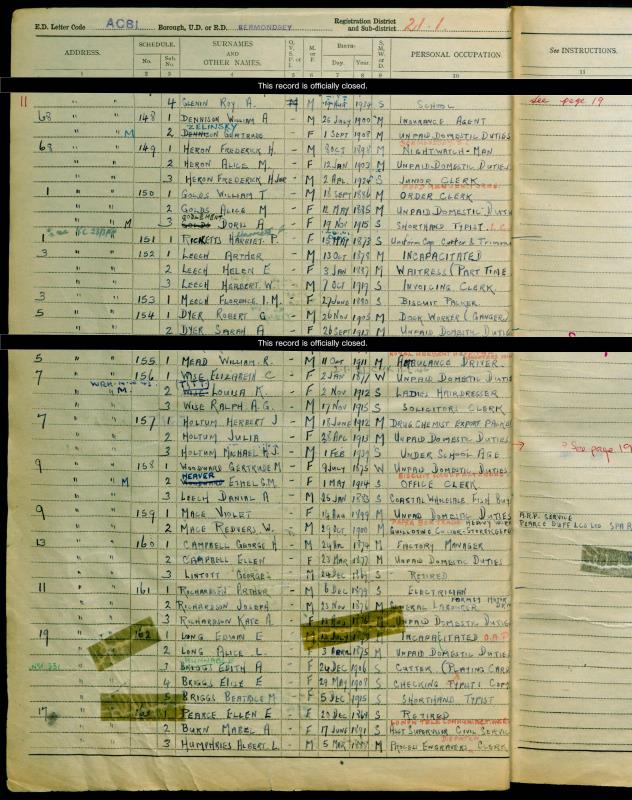 E.D. Letter Code ACBI Borough, U.D. or R.D. BERMONDSEY Registration District and Sub-district 21-1.
ADDRESS. SCHEDULE. SURNAMES AND OTHER NAMES. O.V.S.P. or I. M. or F. BIRTH— S.M.W. or D. PERSONAL OCCUPATION. See INSTRUCTIONS.
No. Sub. No. Day. Year.
1 2 3 4 5 6 7 8 9 10 11
This record is officially closed.
11 " " 4 GLENIN ROY A. M 1934 S SCHOOL see page 19
68 " " 148 1 DENNISON WILLIAM A - M 26 JULY 1900 M INSURANCE AGENT
ZELINSKY
" " M 2 DENNISON GERTRUDE - F 1 SEPT 1908 M UNPAID DOMESTIC DUTIES
63 " " 149 1 HERON FREDERICK H. - M 8 OCT 1898 M NIGHTWATCH-MAN
" " 2 HERON ALICE M. - F 12 JAN 1903 M UNPAID DOMESTIC DUTIES
" " 3 HERON FREDERICK H JNR - M 2 APL. 1924 S JUNIOR CLERK
1 " " 150 1 GOLDS WILLIAM T - M 18 SEPT 1886 M ORDER CLERK
" " 2 GOLDS ALICE M - F 12 MAY 1885 M UNPAID DOMESTIC DUTIES
" " M 3 GOLDS DORIS A - F 19 NOV 1915 S SHORTHAND TYPIST
1 " " 151 1 RICKETTS HARRIET. P. - F 15 MAY 1873 S Uniform Cap Cutter & Trimmer
3 " " 152 1 LEECH ARTHER - M 13 OCT 1878 M INCAPACITATED
" " 2 LEECH HELEN E - F 3 JAN 1887 M WAITRESS (PART TIME
" " 3 LEECH HERBERT W. - M 7 OCT 1919 S INVOICING CLERK
3 " " 153 1 MEECH FLORENCE. I. M. - F 27 JUNE 1880 S BISCUIT PACKER
5 " " 154 1 DYER ROBERT G - M 26 NOV 1905 M DOCK WORKER (GANGER)
" " 2 DYER SARAH A - F 26 SEPT 1913 M UNPAID DOMESTIC DUTIES
This record is officially closed.
5 " " 155 1 MEAD WILLIAM. R. - M 11 OCT 1911 M AMBULANCE DRIVER.
7 " " 156 1 WISE ELIZABETH C - F 2 JAN 1877 W UNPAID DOMESTIC DUTIES
TITT
" M. 2 WISE LOUISA K. - F 2 NOV 1912 S LADIES HAIRDRESSER
" " 3 WISE RALPH A.G. - M 17 NOV 1915 S SOLICITORS CLERK
7 " " 157 1 HOLTUM HERBERT J - M 18 JUNE 1912 M DRUG CHEMIST EXPORT PACKER
" " 2 HOLTUM JULIA - F 28 APL 1913 M UNPAID DOMESTIC DUTIES
" " 3 HOLTUM MICHAEL R J. - M 1 FEB 1939 S UNDER SCHOOL AGE See page 19
9 " " 158 1 WOODWARD GERTRUDE M - F 9 JULY 1875 W UNPAID DOMESTIC DUTIES
HEAVER
" " M 2 WOODWARD ETHEL G.M. - F 1 MAY 1914 S OFFICE CLERK
" " 3 LEECH DANIAL A - M 26 JAN 1883 S COASTAL WHOLESALE FISH BUY
9 " " 159 1 MACE VIOLET - F 1899 M UNPAID DOMESTIC DUTIES A.R.P. SERVICE
" " 2 MACE REDVERS. W. - M 29 OCT 1900 M PEARCE DUFF & CO LTD SPA R
13 " " 160 1 CAMPBELL GEORGE H - M 24 JAN 1874 M FACTORY MANAGER
" " 2 CAMPBELL ELLEN - F 23 MAR 1877 M UNPAID DOMESTIC DUTIES
" " 3 LINTOTT GEORGE - M 24 DEC S RETIRED
11 " " 161 1 RICHARDSON ARTHER - M 6 DEC 1879 S ELECTRICIAN
" " 2 RICHARDSON JOSEPH - M 23 NOV 1876 M GENERAL LABOURER
" " 3 RICHARDSON KATE A. - F M UNPAID DOMESTIC DUTIES
19 " " 162 1 LONG EDWIN E - M M INCAPACITATED O.A.P.
" " 2 LONG ALICE L. - F 3 APRIL 1875 M UNPAID DOMESTIC DUTIES
" " 3 BRIGGS EDITH A - F 24 DEC 1906 S CUTTER (PLAYING CARD
" " 4 BRIGGS ELSIE E - F 24 MAY 1908 S CHECKING TYPIST
" " 5 BRIGGS BEATRICE M - F 5 DEC 1915 S SHORTHAND TYPIST
17 " " 163 1 PEARCE ELLEN E - F 20 DEC 1868 S RETIRED
" " 2 BURN MABEL A - F 17 JUNE 1891 S ASST SUPERVISOR CIVIL SERVIC
" " 3 HUMPHRIES ALBERT. L. - M 5 MAR M PROCESS ENGRAVERS CLERK